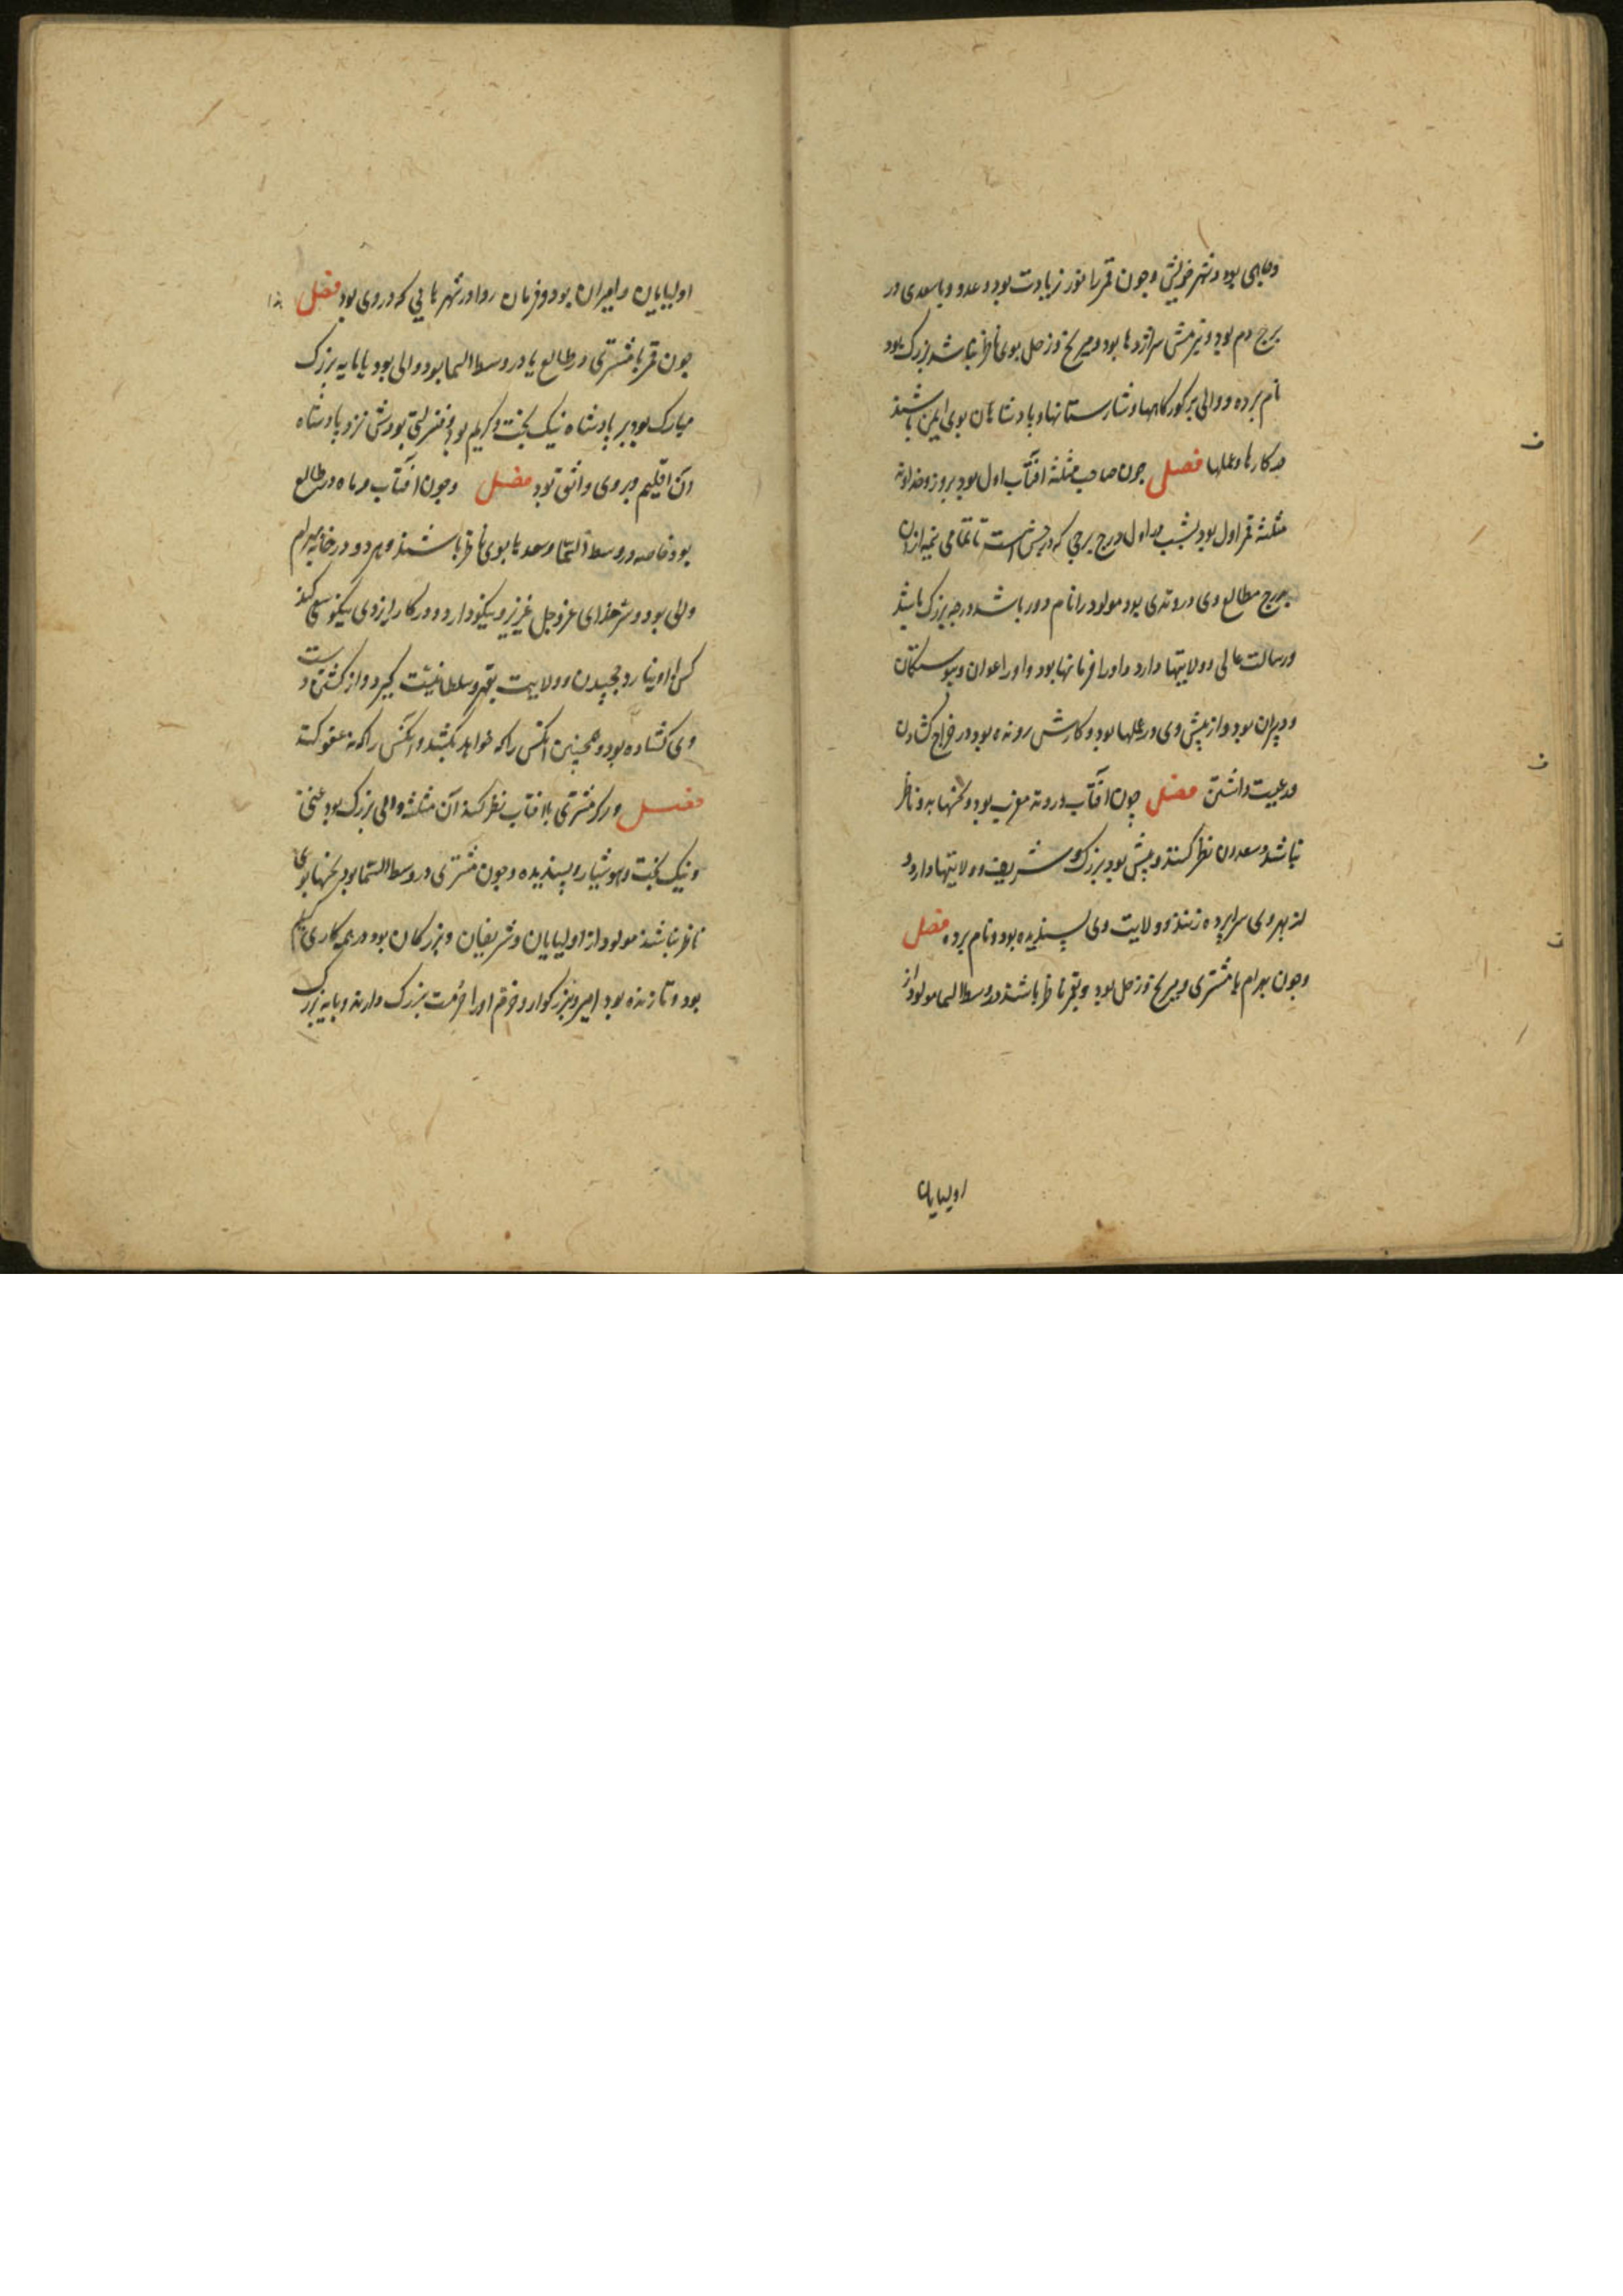 وجاهی بود و شهر خویش و چون قمر را نور زیادت بود و عدو و با سعدی در
برج دم بود و نیرمش سر اژدها بود و مریخ و زحل بوی ناظر نباشد بزرک بود
نام برده و والی بر کور کاهها و شارستانها و پادشاهان بوی ایمن باشند
بر کارها و عملها فصل چون صاحب مثلثه افتاب اول بود بروز و خداوند
مثلثه قمر اول بود بشب در اول درج برجی که در پس است تا تمامی نمه از ان
برج مطالع وی در وتدی بود مولود را نام دور باشد درجه بزرک باشد
ورسالت عالی و ولایتها دارد و اورا فرمانها بود و اورا اعوان و پیوستکان
و دبیران بود و از پیش وی در عملها بود و کارش رونده بود در خراج کشادن
و رعیت داشتن فصل چون افتاب در وتد مغرب بود و نحسها به و ناظر
نباشد و سعدان نظر کنند و پیش بود بزرک و شریف و ولایتها دارد و
از بهر وی سراپرده زنند و ولایت وی پسندیده بود و نام برده فصل
و چون بهرام با مشتری و مریخ و زحل بود و بقمر ناظر باشند در وسط السما مولود از
اولیایان
اولیایان و امیران بود و فرمان روا در شهرهایی که در وی بود فصل
چون قمر با مشتری در طالع یا در وسط السما بود والی بود یا پایه بزرک
مبارک بود بر پادشاه نیک بخت و کریم بود و منزلتی بودش نزد پادشاه
آن اقلیم و بر وی واثق بود فصل و چون افتاب و ماه در طالع
بود خاصه در وسط السما و سعدها بوی ناظر باشند و هر دو در خانه بهرام
والی بود و شر خدای عز وجل عزیز و نیکو دارد و در کار ایزدی نیکو سعی کند
کس با او نیارد چخیدن و ولایت بقهر و سلطانیت کیرد و از کشتن دست
وی کشاده بود و همچنین آنکس را که خواهد بکشد و آنکس را که نه عفو کند
فصل و اکر مشتری بافتاب نظر کند آن مثلثه والی بزرک بود غنی
و نیک بخت و هوشیار و پسندیده و چون مشتری در وسط السما بود نحسها بوی
ناظر نباشند مولود از اولیایان و شریفان و بزرکان بود در همه کاری
بود و تا زنده بود امیر و بزرکوار و خرم اورا حرمت بزرک دارند و پایه بزرک